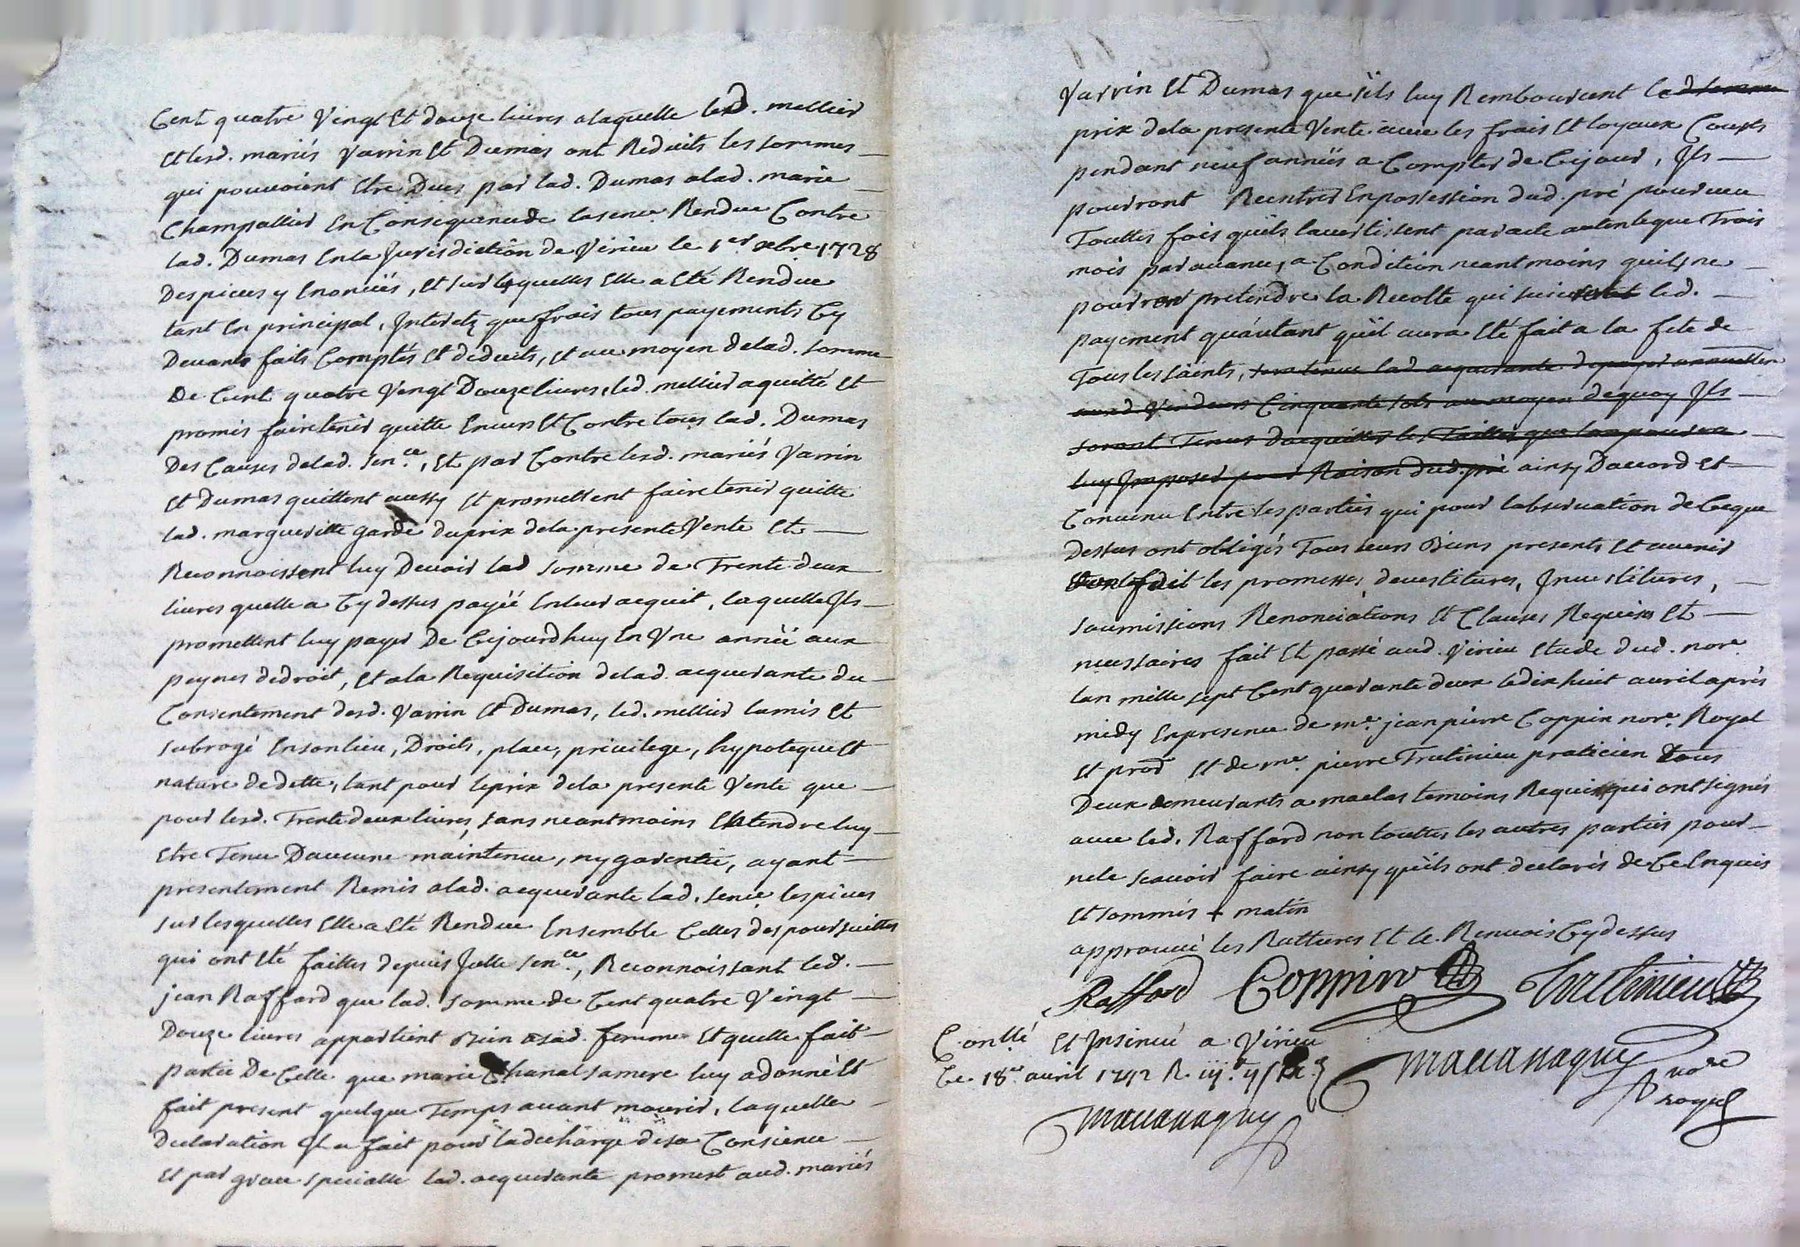 Cent quatre Vingt Et douze livres a laquelle led. mellier
Et lesd. mariés Varrin Et Dumas ont Reduits les sommes
qui pouvoient Etre Dues par lad. Dumas a lad. marie
Champallier En Consequence de la sence Rendue Contre
lad. Dumas En la Jurisdiction de Virieu le 1er xbre 1728
Des pieces y Enoncées, Et sur lesquelles Elle a Eté Rendue
tant En principal, Interetz que frais tous payements Cy
Devants faits Comptés Et déduits, Et au moyen de lad. somme
De Cent quatre Vingt Douze livres, led. mellier a quitté Et
promis faire tenir quitte Envers Et Contre tous lad. Dumas
Des Causes de lad. Sence, Et par Contre lesd. mariés Varrin
Et Dumas quittent aussy Et promettent faire tenir quitte
lad. margueritte garde du prix de la presente Vente Et
Reconnoissent luy Devoir lad somme de Trente deux
livres quelle a Cy dessus payéé En leur acquit, laquelle Ils
promettent luy payer De Cejourdhuy En Une année aux
peynes de droit, Et a la Requisition de lad. acquerante du
Consentement desd. Varrin Et Dumas, led. mellier la mis Et
subrogé En son lieu, Droits, place, privilege, hypoteque Et
nature de dette, tant pour le prix de la presente Vente que
pour lesd. Trente deux livres, sans neantmoins Entendre luy
Etre Tenu Daucune maintenue, ny garentie, ayant
presentement Remis a lad. acquerante lad. sence les pieces
sur lesquelles Elle a Eté Rendue Ensemble Celles des poursuittes
qui ont Eté faittes depuis Jcelle Sence, Reconnoissant led.
jean Raffard que lad. somme de Cent quatre Vingt
Douze livres appartient Bien a sad. femme Et quelle fait
partie De Celle que marie Chanal sa mere luy a donné Et
fait present quelque Temps avant mourir, laquelle
Declaration Il a fait pour la decharge de sa Consience
Et par grace specialle lad. acquerante promest aud. mariés
Varrin Et Dumas que s'ils luy Remboursent le d somme
prix de la presente Vente avec les frais Et loyaux Couts
pendant neuf années a Compter de Cejour, Ils
pourront Rentrer En possession dud. pré pourveu
Touttes fois qu'ils lavertissent par acte autenteque Trois
mois par avance, a Condition neantmoins quils ne
pourront pretendre la Recolte qui suivra led.
payement qu'autant qu'il aura Eté fait a la fete de
Tous les saints, sera tenue lad acquerante de payer annuellem
aud. Vendeurs Cinquante sols au moyen de quoy Ils
seront Tenus dacquitter les Tailles que l'on pourra
luy Imposer pour Raison dud. pré ainsy Daccord Et
Convenu Entre les parties qui pour lobservation de Ceque
Dessus ont obligés Tous leurs Biens presents Et avenir
fait les promesses, devestitures, Investitures,
soumissions Renonciations Et Clauses Requises Et
necessaires fait Et passé aud. Virieu Etude dud. nore
lan mille sept Cent quarante deux le dix huit avril après
midy En presence de me. jean pierre Coppin nore. Royal
Et prod Et de me. pierre Trutinieu praticien tous
Deux demeurants a maclas temoins Requis qui ont signés
avec led. Raffard non touttes les autres parties pour
ne le scavoir faire ainsy qu'ils ont declarés de Ce Enquis
Et sommés + matin
approuvé les Rattures Et le Renvois Cy dessus
Raffard Coppin Trutinieu
Conllé Et Insinué a Virieu
Ce 18e. avril 1742 R
mauanaguy
mauanaguy nore
royal